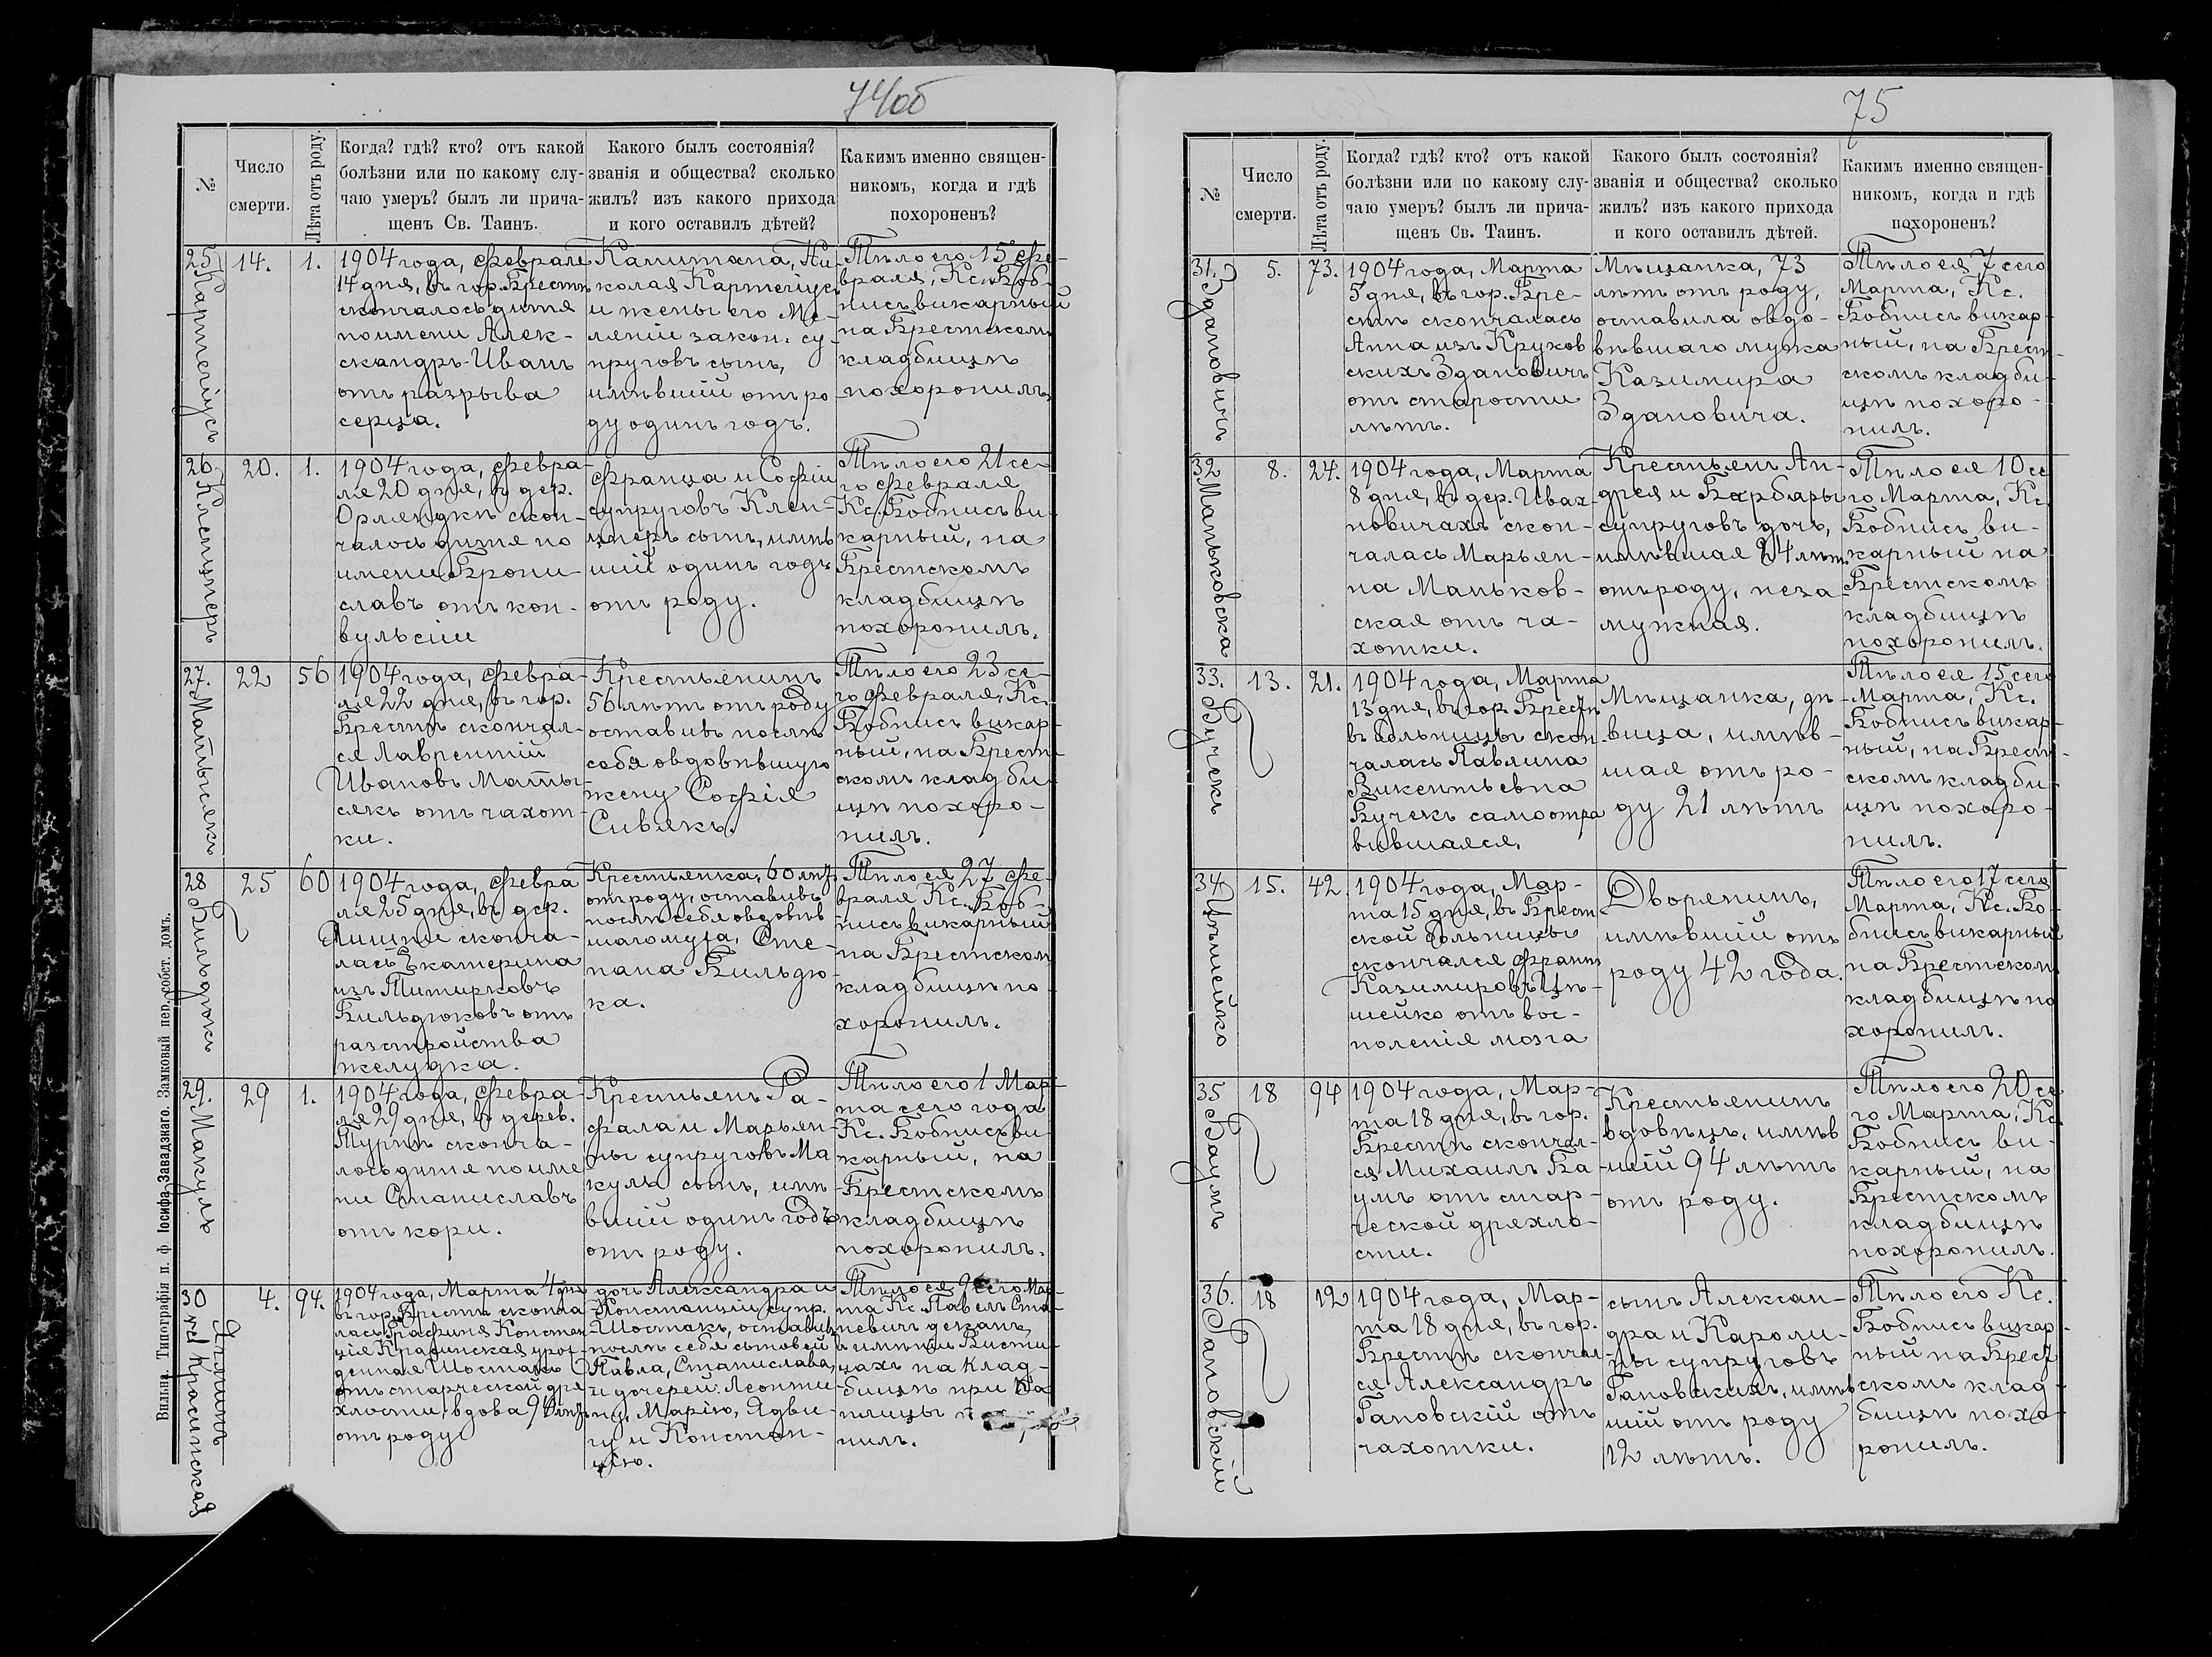 74об
№
Число
смерти.
Лѣта отъ роду.
Когда? гдѣ? кто? отъ какой
болѣзни или по какому слу-
чаю умеръ? былъ ли прича-
щенъ Св. Таинъ.
Какого былъ состоянія?
званія и общества? сколько
жилъ? изъ какого прихода
и кого оставилъ дѣтей?
Какимъ именно священ-
никомъ, когда и гдѣ
похороненъ?
25
14.
1.
1904 года, Февраля
14 дня, въ гор. Брестѣ
скончалось дитя
по имени Алек-
скандръ-Иванъ
отъ разрыва
серца.
Капитана, Ни-
колая
и жены его Ме-
леніи закон. су-
пруговъ сынъ,
имѣвшій отъ ро
ду одинъ годъ.
Тѣло его 15 Фе-
враля, Кс. Боб-
нисъ викарный
на Брестскомъ
кладбищѣ
похоронилъ.
26
Клепцперъ
20.
1.
1904 года, Февра-
ля 20 дня, въ дер.
Орлянкѣ скон-
чалось дитя по
имени Брони-
славъ отъ кон-
вульсіи
Франца и Софіи
супруговъ Клеп-
цперъ сынъ, имѣв
шій одинъ годъ
отъ роду.
Тѣло его 21 се-
го Февраля
Кс. Бобнисъ ви-
карный, на
Брестскомъ
кладбищѣ
похоронилъ.
27.
Матысякъ
22
56
1904 года, Февра-
ля 22 дня, въ гор.
Брестѣ скончал-
ся Лаврентій
Ивановъ Маты-
сякъ отъ чахот-
ки.
Крестьянинъ
56 лѣтъ отъ роду
оставивъ послѣ
себя овдовѣвшую
жену Софія
Сивякъ.
Тѣло его 23 се-
го Февраля, Кс.
Бобнисъ викар-
ный, на Брест-
скомъ кладби-
щѣ похоро-
нилъ.
28
Бильдюкъ
25
60
1904 года, Февра
ля 25 дня, въ дер.
сконча-
лась Екатерина
изъ Титирковъ
Бильдюковъ отъ
разстройства
желудка.
Крестьянка, 60 лѣтъ
отъ роду, оставивъ
послѣ себя овдовѣв
шаго мужа, Сте-
пана Бильдю-
ка.
Тѣло ея 27 Фе-
враля Кс. Боб-
нисъ викарный
на Брестском
кладбищѣ по-
хоронилъ.
29.
Макулъ
29
1.
1904 года, Февра-
ля 29 дня, въ дерев.
Турнѣ сконча-
лось дитя по име
ни Станиславъ
отъ кори.
Крестьянъ Ра-
фала и Марьян-
ны супруговъ Ма
кулъ сынъ, имѣ
вшій одинъ годъ
отъ роду.
Тѣло его 1 Мар-
та сего года
Кс. Бобнисъ ви-
карный, на
Брестскомъ
кладбищѣ
похоронилъ.
30
Красинская
4.
94.
1904 года, Марта 4 дня
въ гор. Брестѣ сконча
лась Графиня Констан
ція Красинская урож
денная Шостакъ
отъ старческой дря
хлости, вдова 94 лѣтъ
отъ роду
дочь Александра и
Констанціи супр.
Шостакъ, оставивъ
послѣ себя сыновей
Павла, Станислава,
и дочерей: Леонти
ну, Марію, Ядви-
гу и Констан-
цію.
Тѣло ея 9 сего Мар-
та Кс. Павелъ Ста-
невичъ деканъ,
въ имѣніи Висти-
цахъ на клад-
бищѣ при Ка
плицы
нилъ.
Вильна. Типографія п. ф. Іосифа Завадзкаго. Замковый пер. собст. домъ.
75
№
Число
смерти.
Лѣта отъ роду.
Когда? гдѣ? кто? отъ какой
болѣзни или по какому слу-
чаю умеръ? былъ ли прича-
щенъ Св. Таинъ.
Какого былъ состоянія?
званія и общества? сколько
жилъ? изъ какого прихода
и кого оставилъ дѣтей.
Какимъ именно священ-
никомъ, когда и гдѣ
похороненъ?
31.
Здановичъ
5.
73.
1904 года, Марта
5 дня, въ гор. Бре-
стѣ скончалась
Анна изъ Круков
скихъ Здановичъ
отъ старости
лѣтъ.
Мѣщанка, 73
лѣтъ отъ роду,
оставила овдо-
вѣвшаго мужа
Казимира
Здановича.
Тѣло ея 7 сего
Марта, Кс.
Бобнисъ викар-
ный, на Брест-
скомъ кладби-
щѣ похоро-
нилъ.
32
Маньковска
8.
24.
1904 года, Марта
8 дня, въ дер. Ивах-
новичахъ скон-
чалась Марьян-
на Маньков-
ская отъ ча-
хотки.
Крестьянъ Ан-
дрея и Барбары
супруговъ дочь,
имѣвшая 24 лѣтъ
отъ роду, неза-
мужная.
Тѣло ея 10 се
го Марта, Кс.
Бобнисъ ви-
карный на
Брестскомъ
кладбищѣ
похоронилъ.
33.
Бучекъ
13.
21.
1904 года, Марта
13 дня, въ гор. Брестѣ
въ больницы скон-
чалась Павлина
Викентьевна
Бучекъ самоотра
вившаяся.
Мѣщанка, дѣ-
вица, имѣв-
шая отъ ро-
ду 21 лѣтъ
Тѣло ея 15 сего
Марта, Кс.
Бобнисъ викар-
ный, на Брест-
скомъ кладби-
щѣ похоро-
нилъ.
34
Цѣшейко
15.
42
1904 года, Мар-
та 15 дня, въ Брест
ской больницы
скончался Францъ
Казимировъ Цѣ-
шейко отъ вос-
поленія мозга
Дворянинъ,
имѣвшій отъ
роду 42 года.
Тѣло его 17 сего
Марта, Кс. Бо-
бнисъ викарный
на Брестскомъ
кладбищѣ по
хоронилъ.
35
Баумъ
18
94
1904 года, Мар-
та 18 дня, въ гор.
Брестѣ скончал-
ся Михаилъ Ба
умъ отъ стар-
ческой дряхло-
сти.
Крестьянинъ
вдовецъ, имѣв
шій 94 лѣтъ
отъ роду.
Тѣло его 20 се
го Марта, Кс.
Бобнисъ ви-
карный, на
Брестскомъ
кладбищѣ
похоронилъ.
36.
Гановскій
18
12
1904 года, Мар-
та 18 дня, въ гор.
Брестѣ скончал
ся Александръ
Гановскій отъ
чахотки.
сынъ Алексан-
дра и Кароли-
ны супруговъ
Гановскихъ, имѣв
шій отъ роду
12 лѣтъ.
Тѣло его Кс.
Бобнисъ викар-
ный на Брест
скомъ клад-
бищѣ похо-
ронилъ.